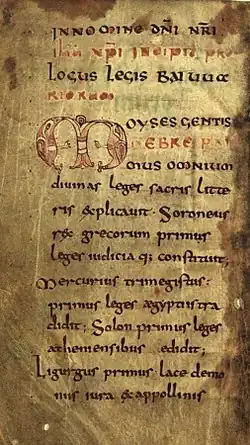 IN NOMINE DNI NRI
IHU XPI INCIPIT PRO
LOGUS LEGIS BAIUUA
RIORUM
MOYSES GENTIS
HEBREE PRI
MUS OMNIUM
divinas leges sacris litte
ris explicavit. Foroneus
rex grecorum primus
leges iudicia q; constituit;
Mercurius trimegistus
primus leges ægyptiis tra
didit; Solon primus leges
atheniensibus edidit;
Ligurgus primus lacedemo
niis iura ex appollinis